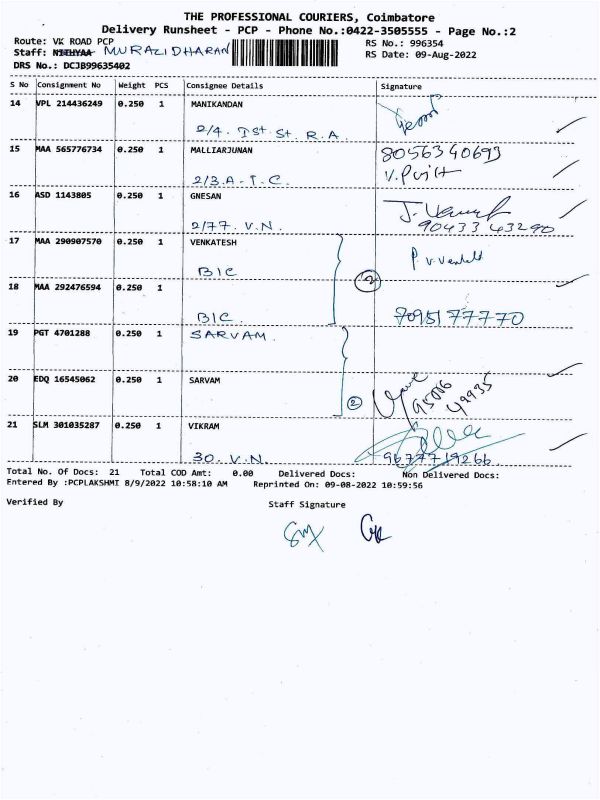 THE PROFESSIONAL COURIERS, Coimbatore
Delivery Runsheet - PCP - Phone No.:0422-3505555 - Page No.:2
Route: VK ROAD PCP
RS No.: 996354
Staff: NITHYAA MURALIDHARAN
RS Date: 09-Aug-2022
DRS No.: DCJB99635402
S No Consignment No Weight PCS Consignee Details Signature
14 VPL 214436249 0.250 1 MANIKANDAN
2/4. Ist St. R.A.
15 MAA 565776734 0.250 1 MALLIARJUNAN 8056340693
2/3.A.T.C.
16 ASD 1143805 0.250 1 GNESAN
2/77. V.N. 9043343290
17 MAA 290907570 0.250 1 VENKATESH
BIC
2
18 MAA 292476594 0.250 1
BIC. 7095177770
19 PGT 4701288 0.250 1 SARVAM.
20 EDQ 16545062 0.250 1 SARVAM
2
21 SLM 301035287 0.250 1 VIKRAM
30. V.N. 9677719266
Total No. Of Docs: 21 Total COD Amt: 0.00 Delivered Docs: Non Delivered Docs:
Entered By :PCPLAKSHMI 8/9/2022 10:58:10 AM Reprinted On: 09-08-2022 10:59:56
Verified By Staff Signature